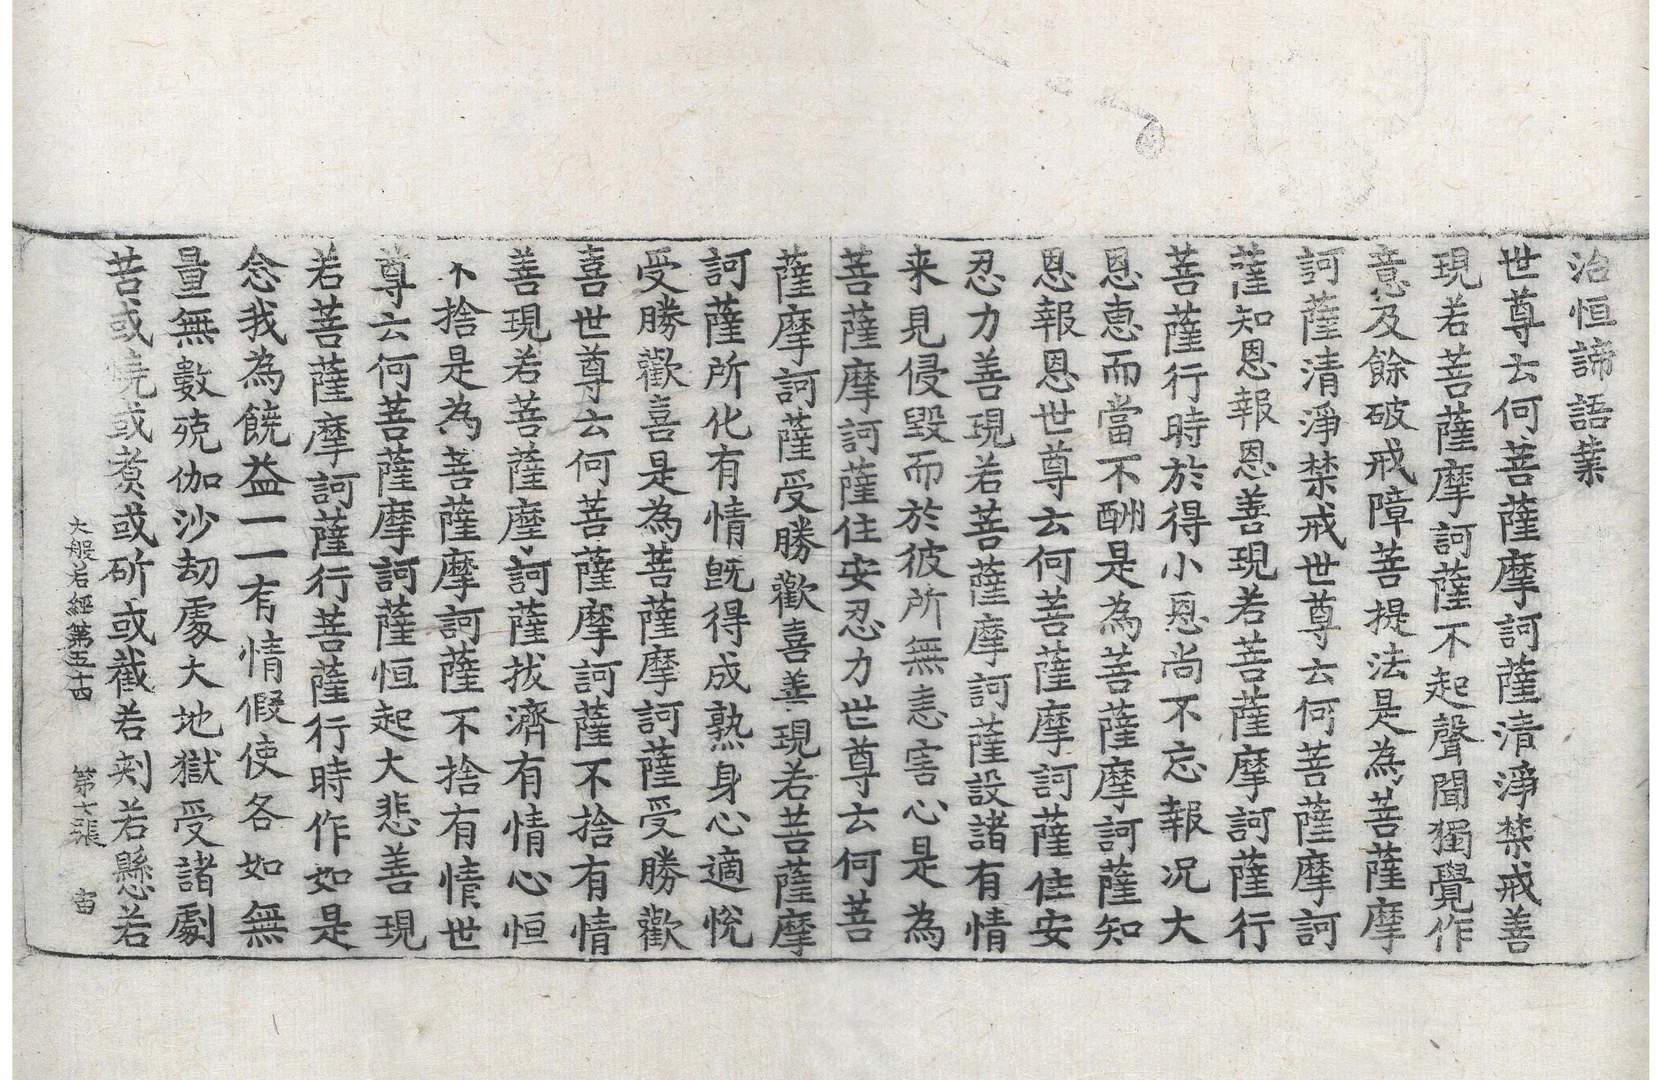 治恒諦語業
世尊云何菩薩摩訶薩清淨禁戒善
現若菩薩摩訶薩不起聲聞獨覺作
意及餘破戒障菩提法是為菩薩摩
訶薩清淨禁戒世尊云何菩薩摩訶
薩知恩報恩善現若菩薩摩訶薩行
菩薩行時於得小恩尚不忘報况大
恩惠而當不酬是為菩薩摩訶薩知
恩報恩世尊云何菩薩摩訶薩住安
忍力善現若菩薩摩訶薩設諸有情
来見侵毀而於彼所無恚害心是為
菩薩摩訶薩住安忍力世尊云何菩
薩摩訶薩受勝歡喜善現若菩薩摩
訶薩所化有情既得成熟身心適悅
受勝歡喜是為菩薩摩訶薩受勝歡
喜世尊云何菩薩摩訶薩不捨有情
善現若菩薩摩訶薩拔濟有情心恒
不捨是為菩薩摩訶薩不捨有情世
尊云何菩薩摩訶薩恒起大悲善現
若菩薩摩訶薩行菩薩行時作如是
念我為饒益一一有情假使各如無
量無數殑伽沙劫處大地獄受諸劇
苦或燒或煑或斫或截若刺若懸若
大般若經第五十四 第六張 宙